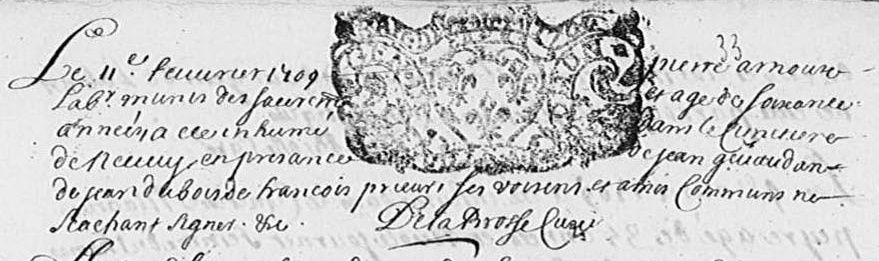 Le 11e feuurier 1709 pierre arnoux
Labr munis des sacremts et age de soixante
années a ete inhumé dans le Cimetiere
de Neuuy en presance de jean geuaudan
de jean dubois de francois prieur ses voisins et amis Communs ne
sachant signer. &c. De la Brosse Curé